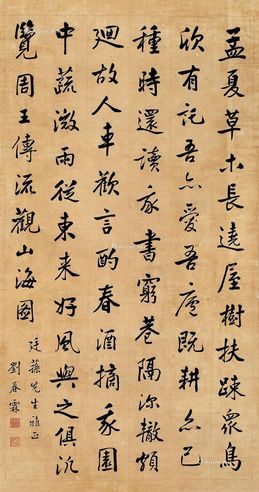 孟夏草木長遶屋樹扶疎衆鳥
欣有託吾亦愛吾廬既耕亦已
種時還讀我書窮巷隔深轍頗
廻故人車歡言酌春酒摘我園
中蔬微雨從東来好風與之俱汎
覽周王傳流觀山海圖
先生雅正
劉春霖